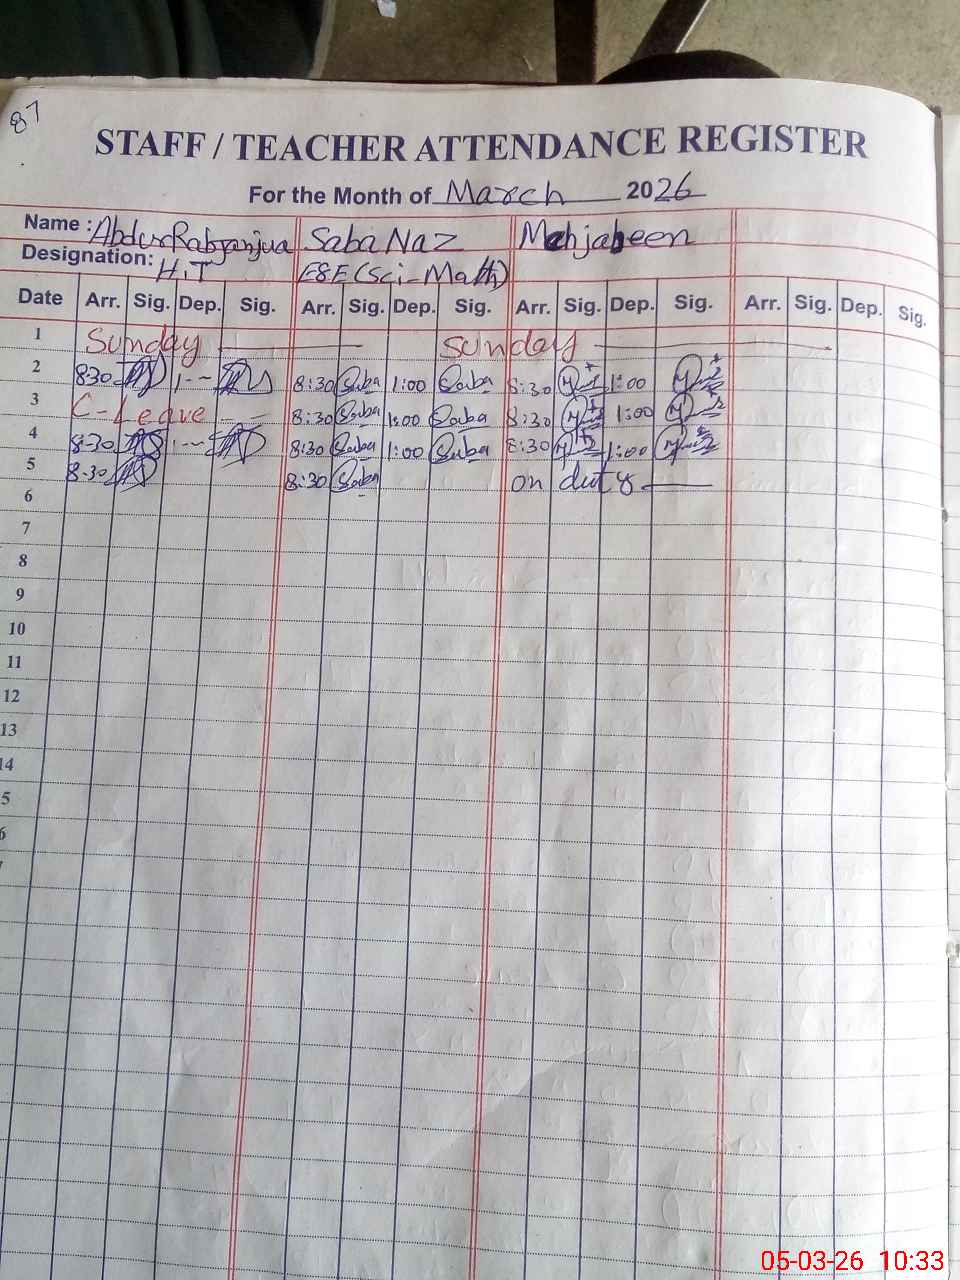 87
STAFF / TEACHER ATTENDANCE REGISTER
For the Month of March 2026
Name : Abdur Rab Janjua Saba Naz Mahjabeen
Designation: H.T ESE (Sci-Math)
Date Arr. Sig. Dep. Sig. Arr. Sig. Dep. Sig. Arr. Sig. Dep. Sig. Arr. Sig. Dep. Sig.
1 Sunday Sunday
2 8:30 1-- 8:30 Saba 1:00 Saba 8:30 1:00
3 C-Leave 8:30 Saba 1:00 Saba 8:30 1:00
4 8:30 1-- 8:30 Saba 1:00 Saba 8:30 1:00
5 8:30 8:30 Saba on duty
6
7
8
9
10
11
12
13
14
5
6
05-03-26 10:33